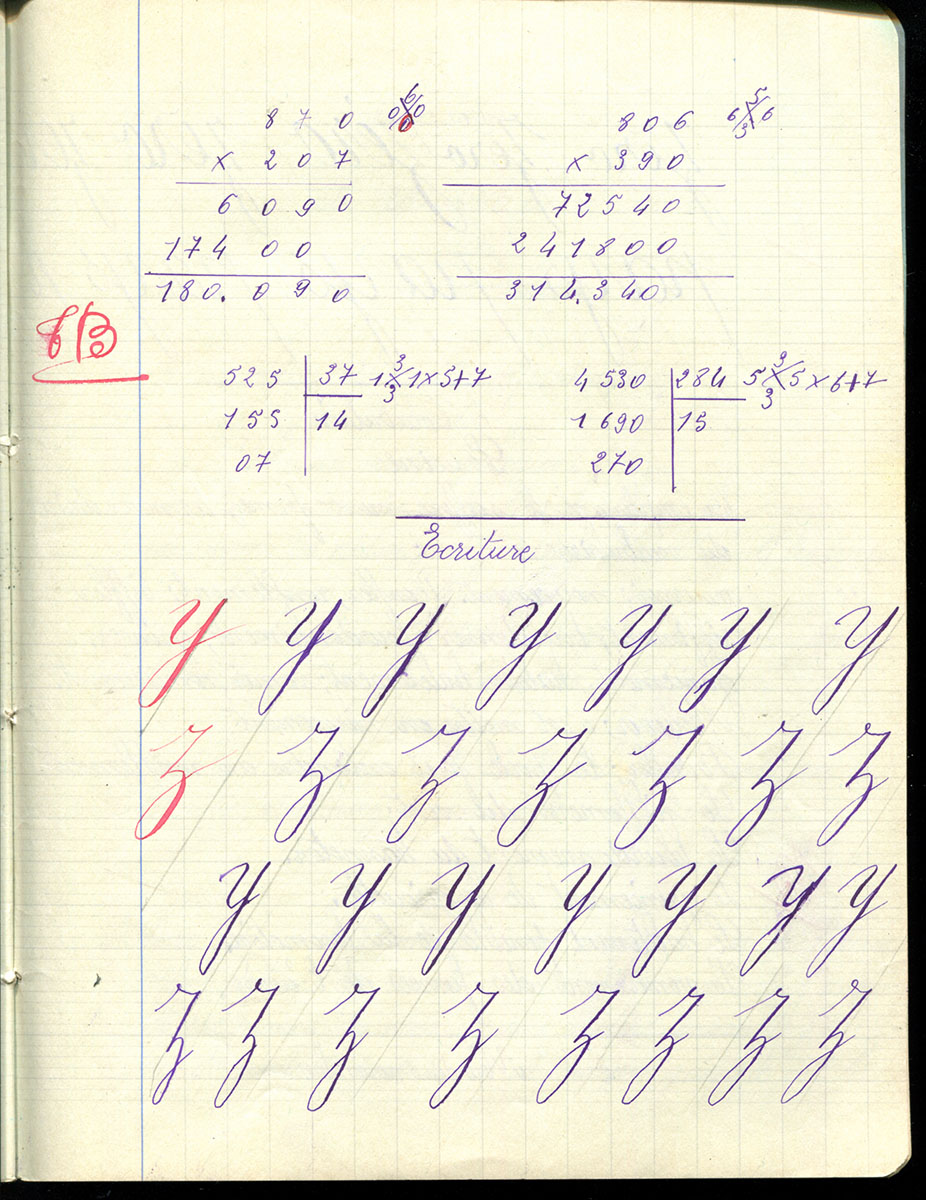 870 0 6 0 0
× 207
6090
174 00
180.090
806 6 5 6 3
× 390
72540
241800
314.340
tB
525 37 1 3 1 × 5 + 7 3
155 14
07
4530 284 5 9 5 × 6 + 7 3
1690 15
270
Ecriture
y y y y y y y
z z z z z z z
y y y y y y y
z z z z z z z z